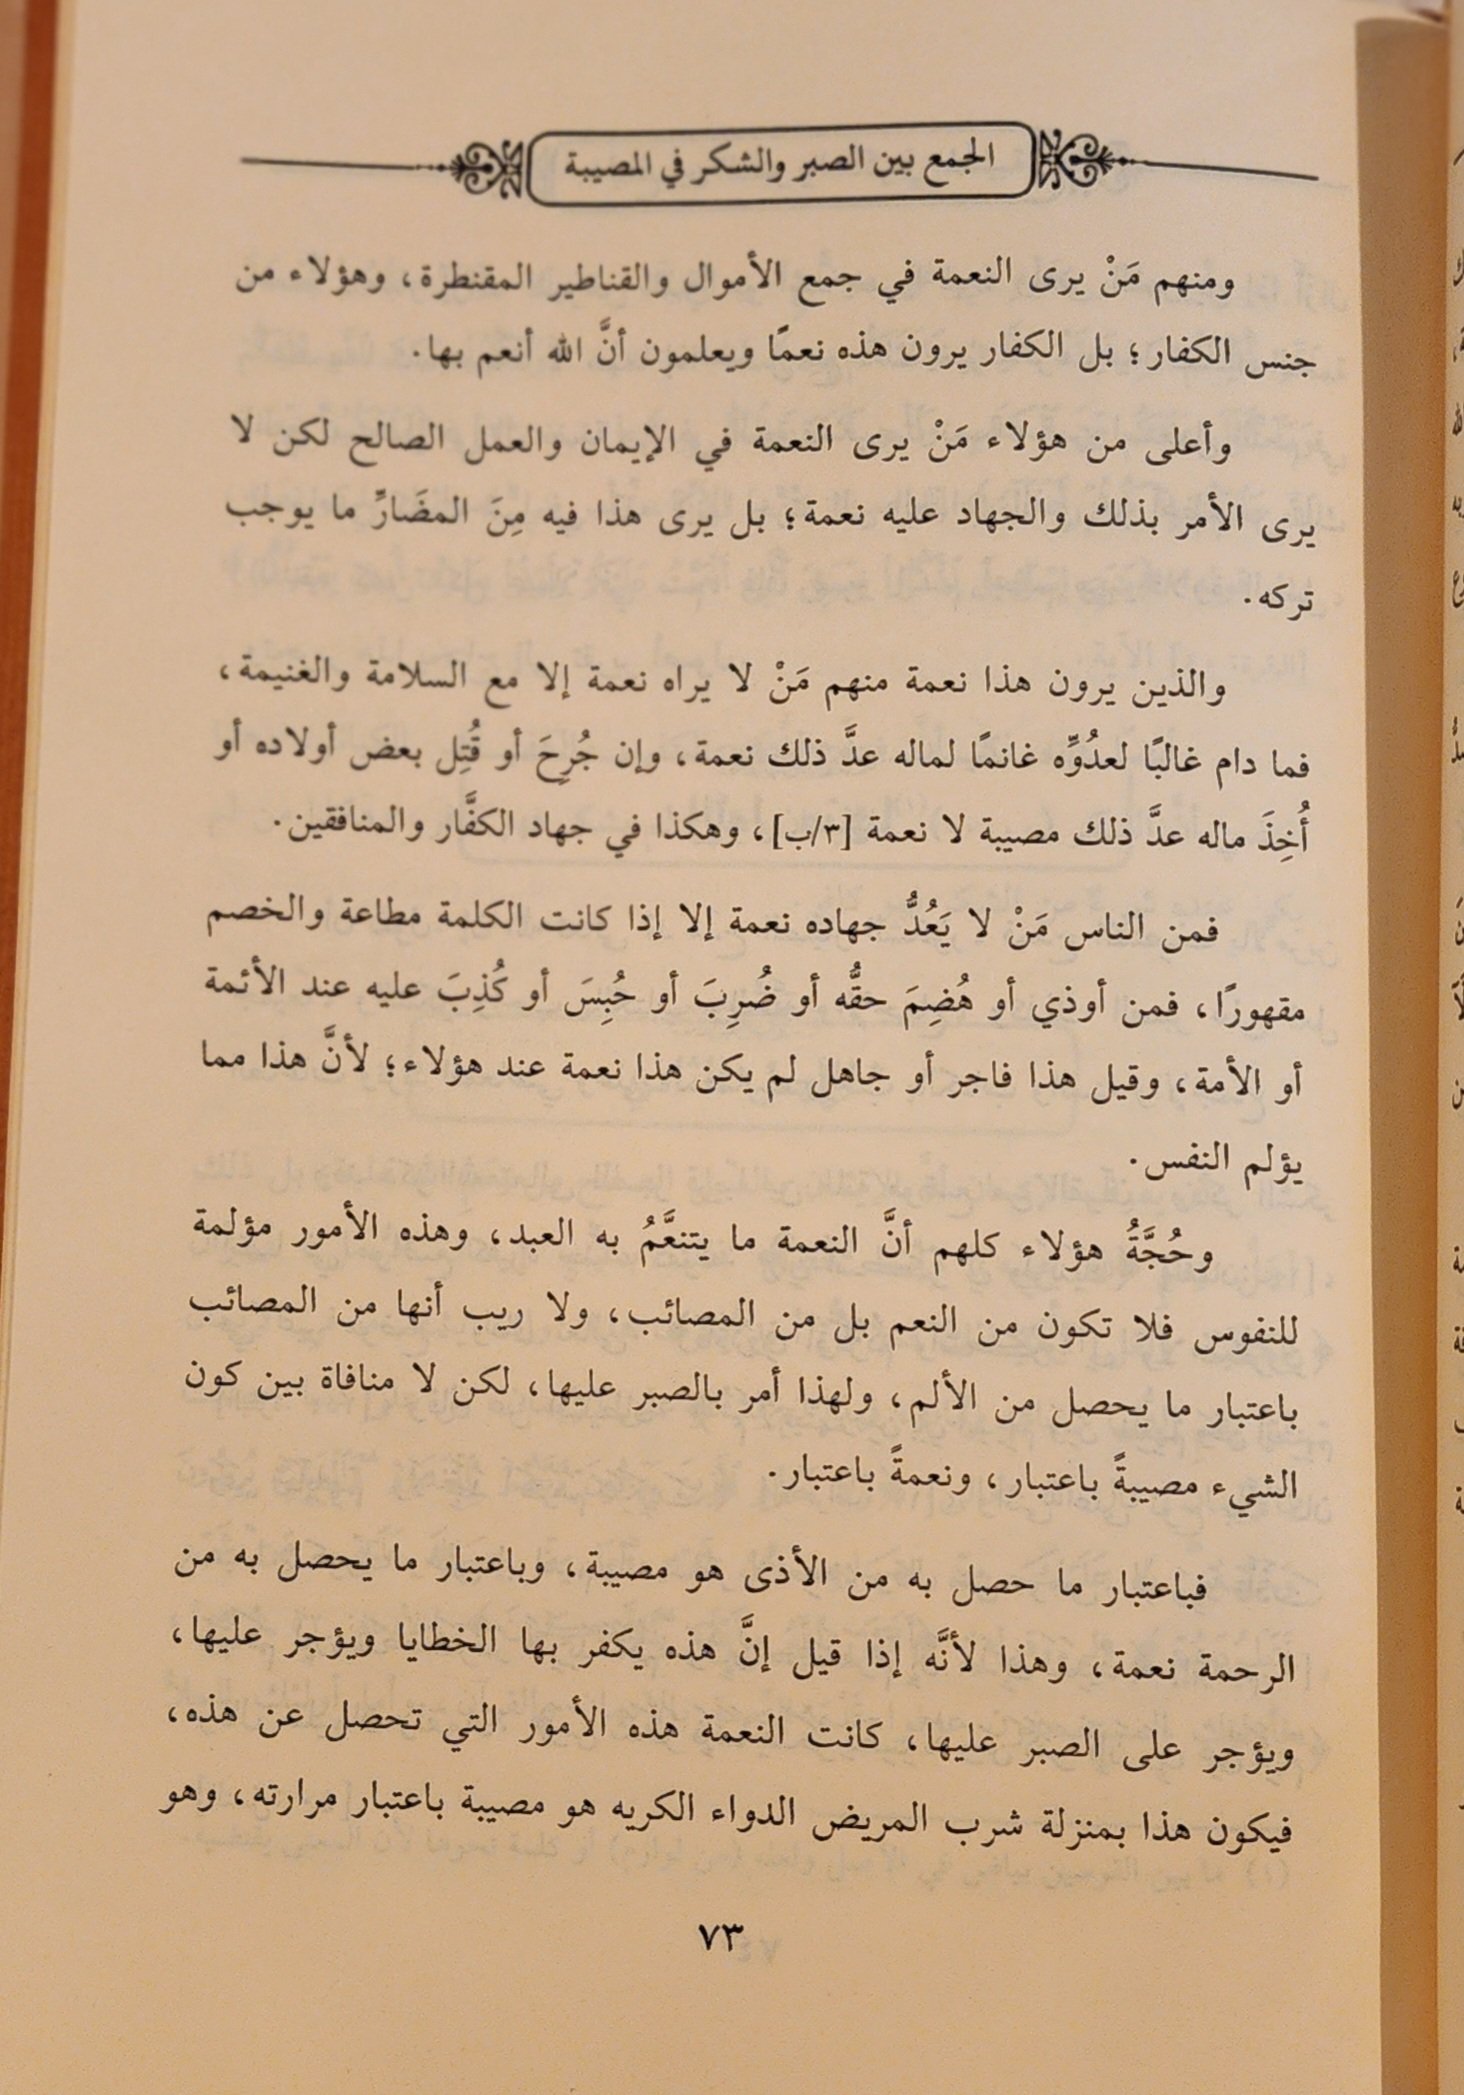 الجمع بين الصبر والشكر في المصيبة
ومنهم مَنْ يرى النعمة في جمع الأموال والقناطير المقنطرة، وهؤلاء من
جنس الكفار؛ بل الكفار يرون هذه نعمًا ويعلمون أنَّ الله أنعم بها.
وأعلى من هؤلاء مَنْ يرى النعمة في الإيمان والعمل الصالح لكن لا
يرى الأمر بذلك والجهاد عليه نعمة؛ بل يرى هذا فيه مِنَ المضَارِّ ما يوجب
تركه.
والذين يرون هذا نعمة منهم مَنْ لا يراه نعمة إلا مع السلامة والغنيمة،
فما دام غالبًا لعدُوِّه غانمًا لماله عدَّ ذلك نعمة، وإن جُرِحَ أو قُتِل بعض أولاده أو
أُخِذَ ماله عدَّ ذلك مصيبة لا نعمة [٣/ب]، وهكذا في جهاد الكفَّار والمنافقين.
فمن الناس مَنْ لا يَعُدُّ جهاده نعمة إلا إذا كانت الكلمة مطاعة والخصم
مقهورًا، فمن أوذي أو هُضِمَ حقُّه أو ضُرِبَ أو حُبِسَ أو كُذِبَ عليه عند الأئمة
أو الأمة، وقيل هذا فاجر أو جاهل لم يكن هذا نعمة عند هؤلاء؛ لأنَّ هذا مما
يؤلم النفس.
وحُجَّةُ هؤلاء كلهم أنَّ النعمة ما يتنعَّمُ به العبد، وهذه الأمور مؤلمة
للنفوس فلا تكون من النعم بل من المصائب، ولا ريب أنها من المصائب
باعتبار ما يحصل من الألم، ولهذا أمر بالصبر عليها، لكن لا منافاة بين كون
الشيء مصيبةً باعتبار، ونعمةً باعتبار.
فباعتبار ما حصل به من الأذى هو مصيبة، وباعتبار ما يحصل به من
الرحمة نعمة، وهذا لأنَّه إذا قيل إنَّ هذه يكفر بها الخطايا ويؤجر عليها،
ويؤجر على الصبر عليها، كانت النعمة هذه الأمور التي تحصل عن هذه،
فيكون هذا بمنزلة شرب المريض الدواء الكريه هو مصيبة باعتبار مرارته، وهو
٧٣